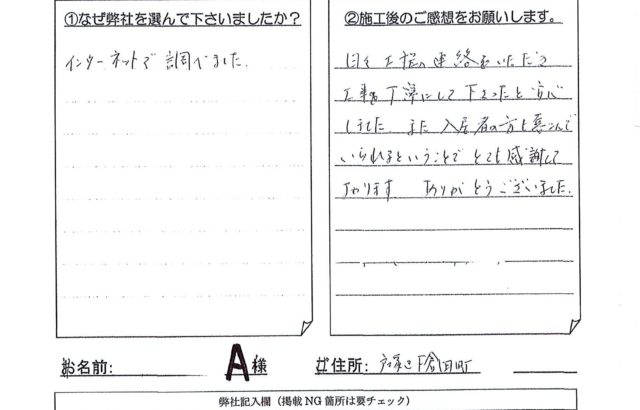 ①なぜ弊社を選んで下さいましたか?
インターネットで調べました。
②施工後のご感想をお願いします。
日々工程の連絡をいただき
工事も丁寧にして下さったと安心
しました また 入居者の方も喜んで
いられるということで とても感謝して
おります ありがとうございました。
お名前: A様
ご住所:
弊社記入欄(掲載NG箇所は要チェック)